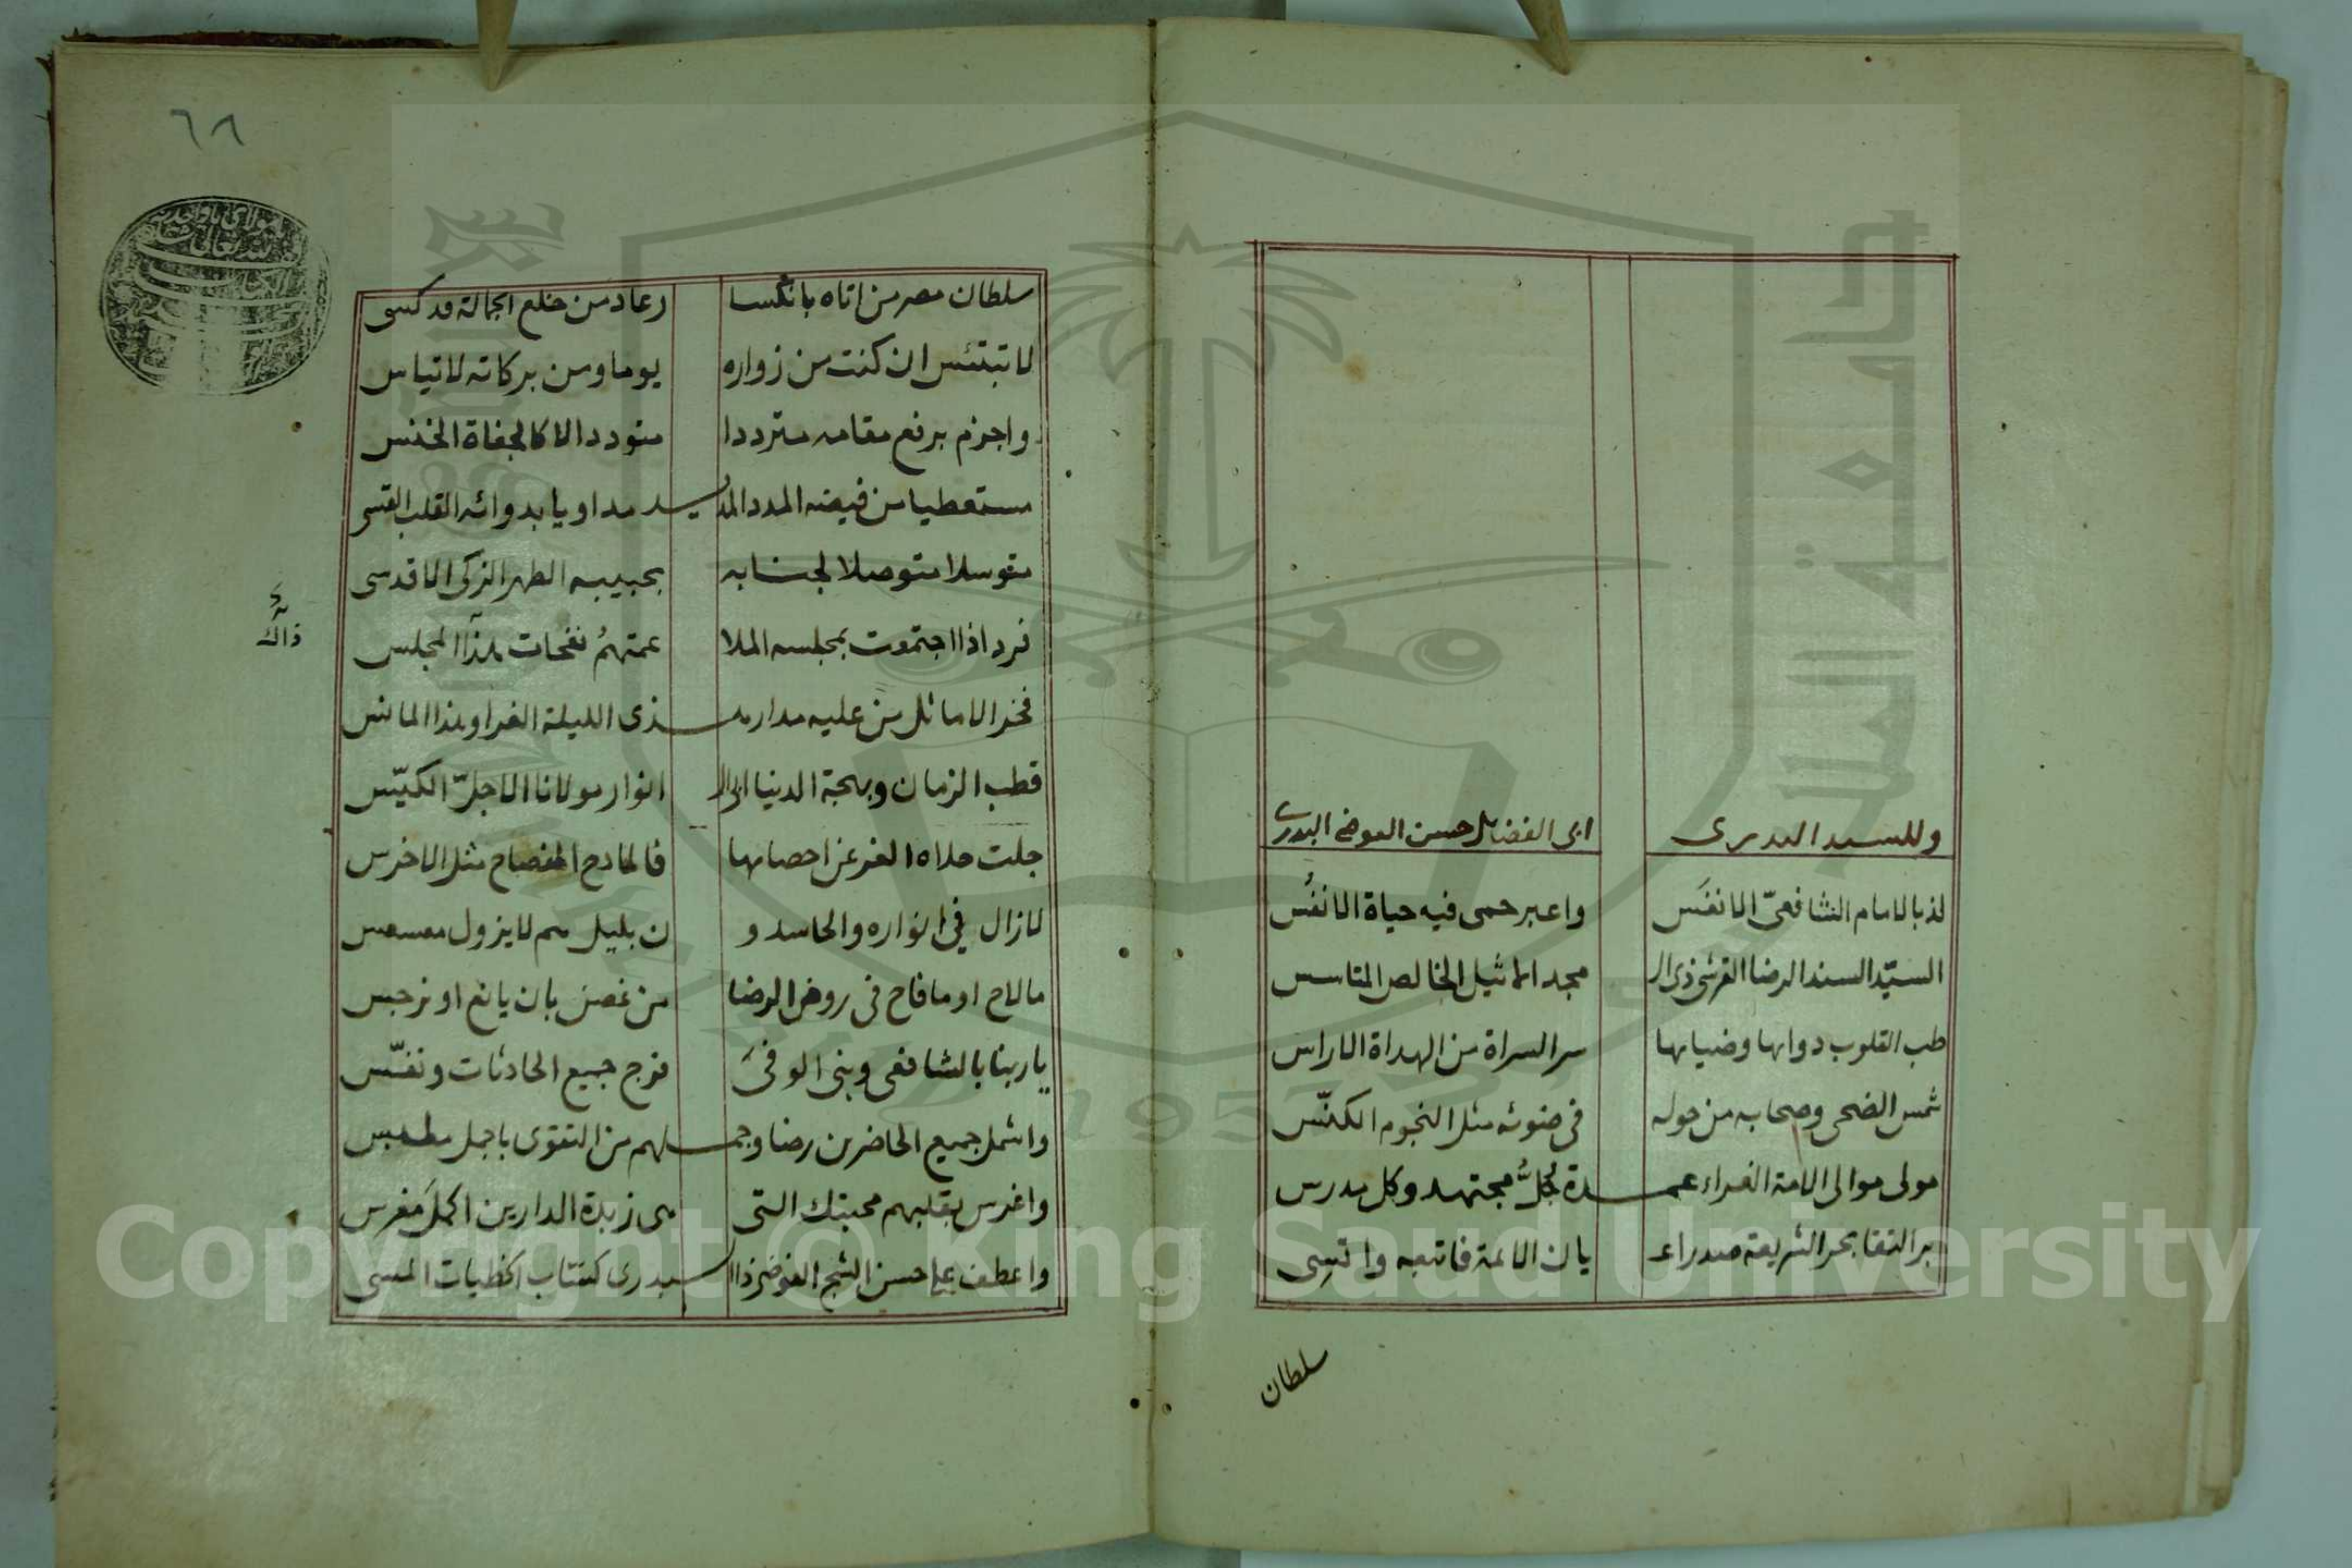 وللسيد البدرى ابى الفضايل حسن العوضى البدرى
لذ بالامام الشافعىّ الانفَس واعبر حمى فيه حياة الانفُس
السيّد السند الرضا القرشى ذى ال مجد الاثيل الخالص المتاسس
طب القلوب دوايها وضيايها سر السراة من الهداة الاراس
شمس الضحى وصحابه من حوله فى ضوئه مثل النجوم الكنّس
مولى موالى الامة الغراء عمدة كُلُّ مجتهد وكل مدرس
بر التقا بحر الشريعة صدر اع يان الائمة فاتبعه واتسِى
سلطان
٦٨
سلطان مصر من اتاه بانكسا رعاد من خلع الجمالة قد كسى
لا تبتئس ان كنت من زواره يوما ومن بركاته لا تياس
واجزم برفع مقامه مترددا متوددا لا كالجفاة الخنس
مستعطيا من فيضه المدد المديد مداويا بدوائه القلب القسى
متوسلا متوصلا لجنابه بحبيبه الطهر الزكى الاقدسى
فرد اذا اجتمعت بمجلسه الملا عمتهمُ نفحات هذا المجلس
ذاك
فخر الاماثل من عليه مدار هذى الليلة الغرا وهذا المانس
قطب الزمان وبهجة الدنيا ابى ال انوار مولانا الاجلّ الكيّس
جلت حلاه الغر عن احصايها فالمادح المفصاح مثل الاخرس
لازال فى انواره والحاسدو ن بليل هم لا يزول معسعس
مالاح او ما فاح فى روض الرضا من غصن بان يانع او نرجس
يا ربنا بالشافعى وبنى الوفى فرج جميع الحادثات ونفّس
واشمل جميع الحاضرين رضا وجملهم من التقوى باجمل ملبس
واغرس بقلبهم محبتك التى هى زبدة الدارين اكمل مَغرس
واعطف على حسن الشجى العوضى ذا البدرى كنتاب الخطيات المسى